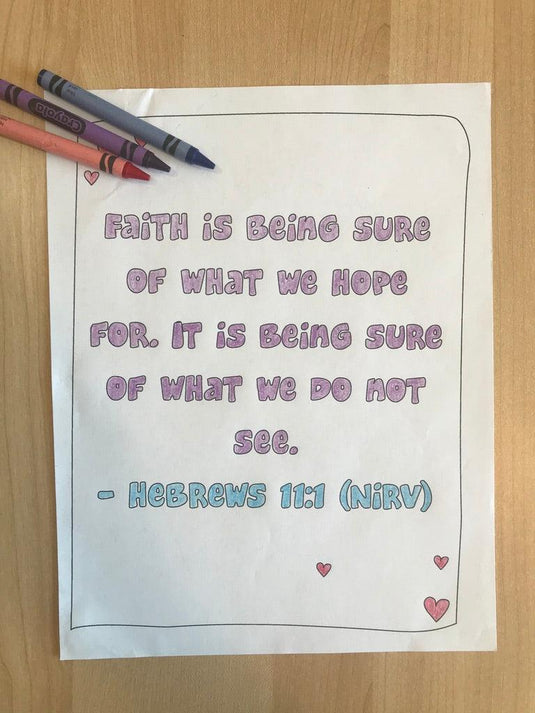 Crayola
Faith is being sure
of what we hope
for. It is being sure
of what we do not
see.
- Hebrews 11:1 (NIRV)